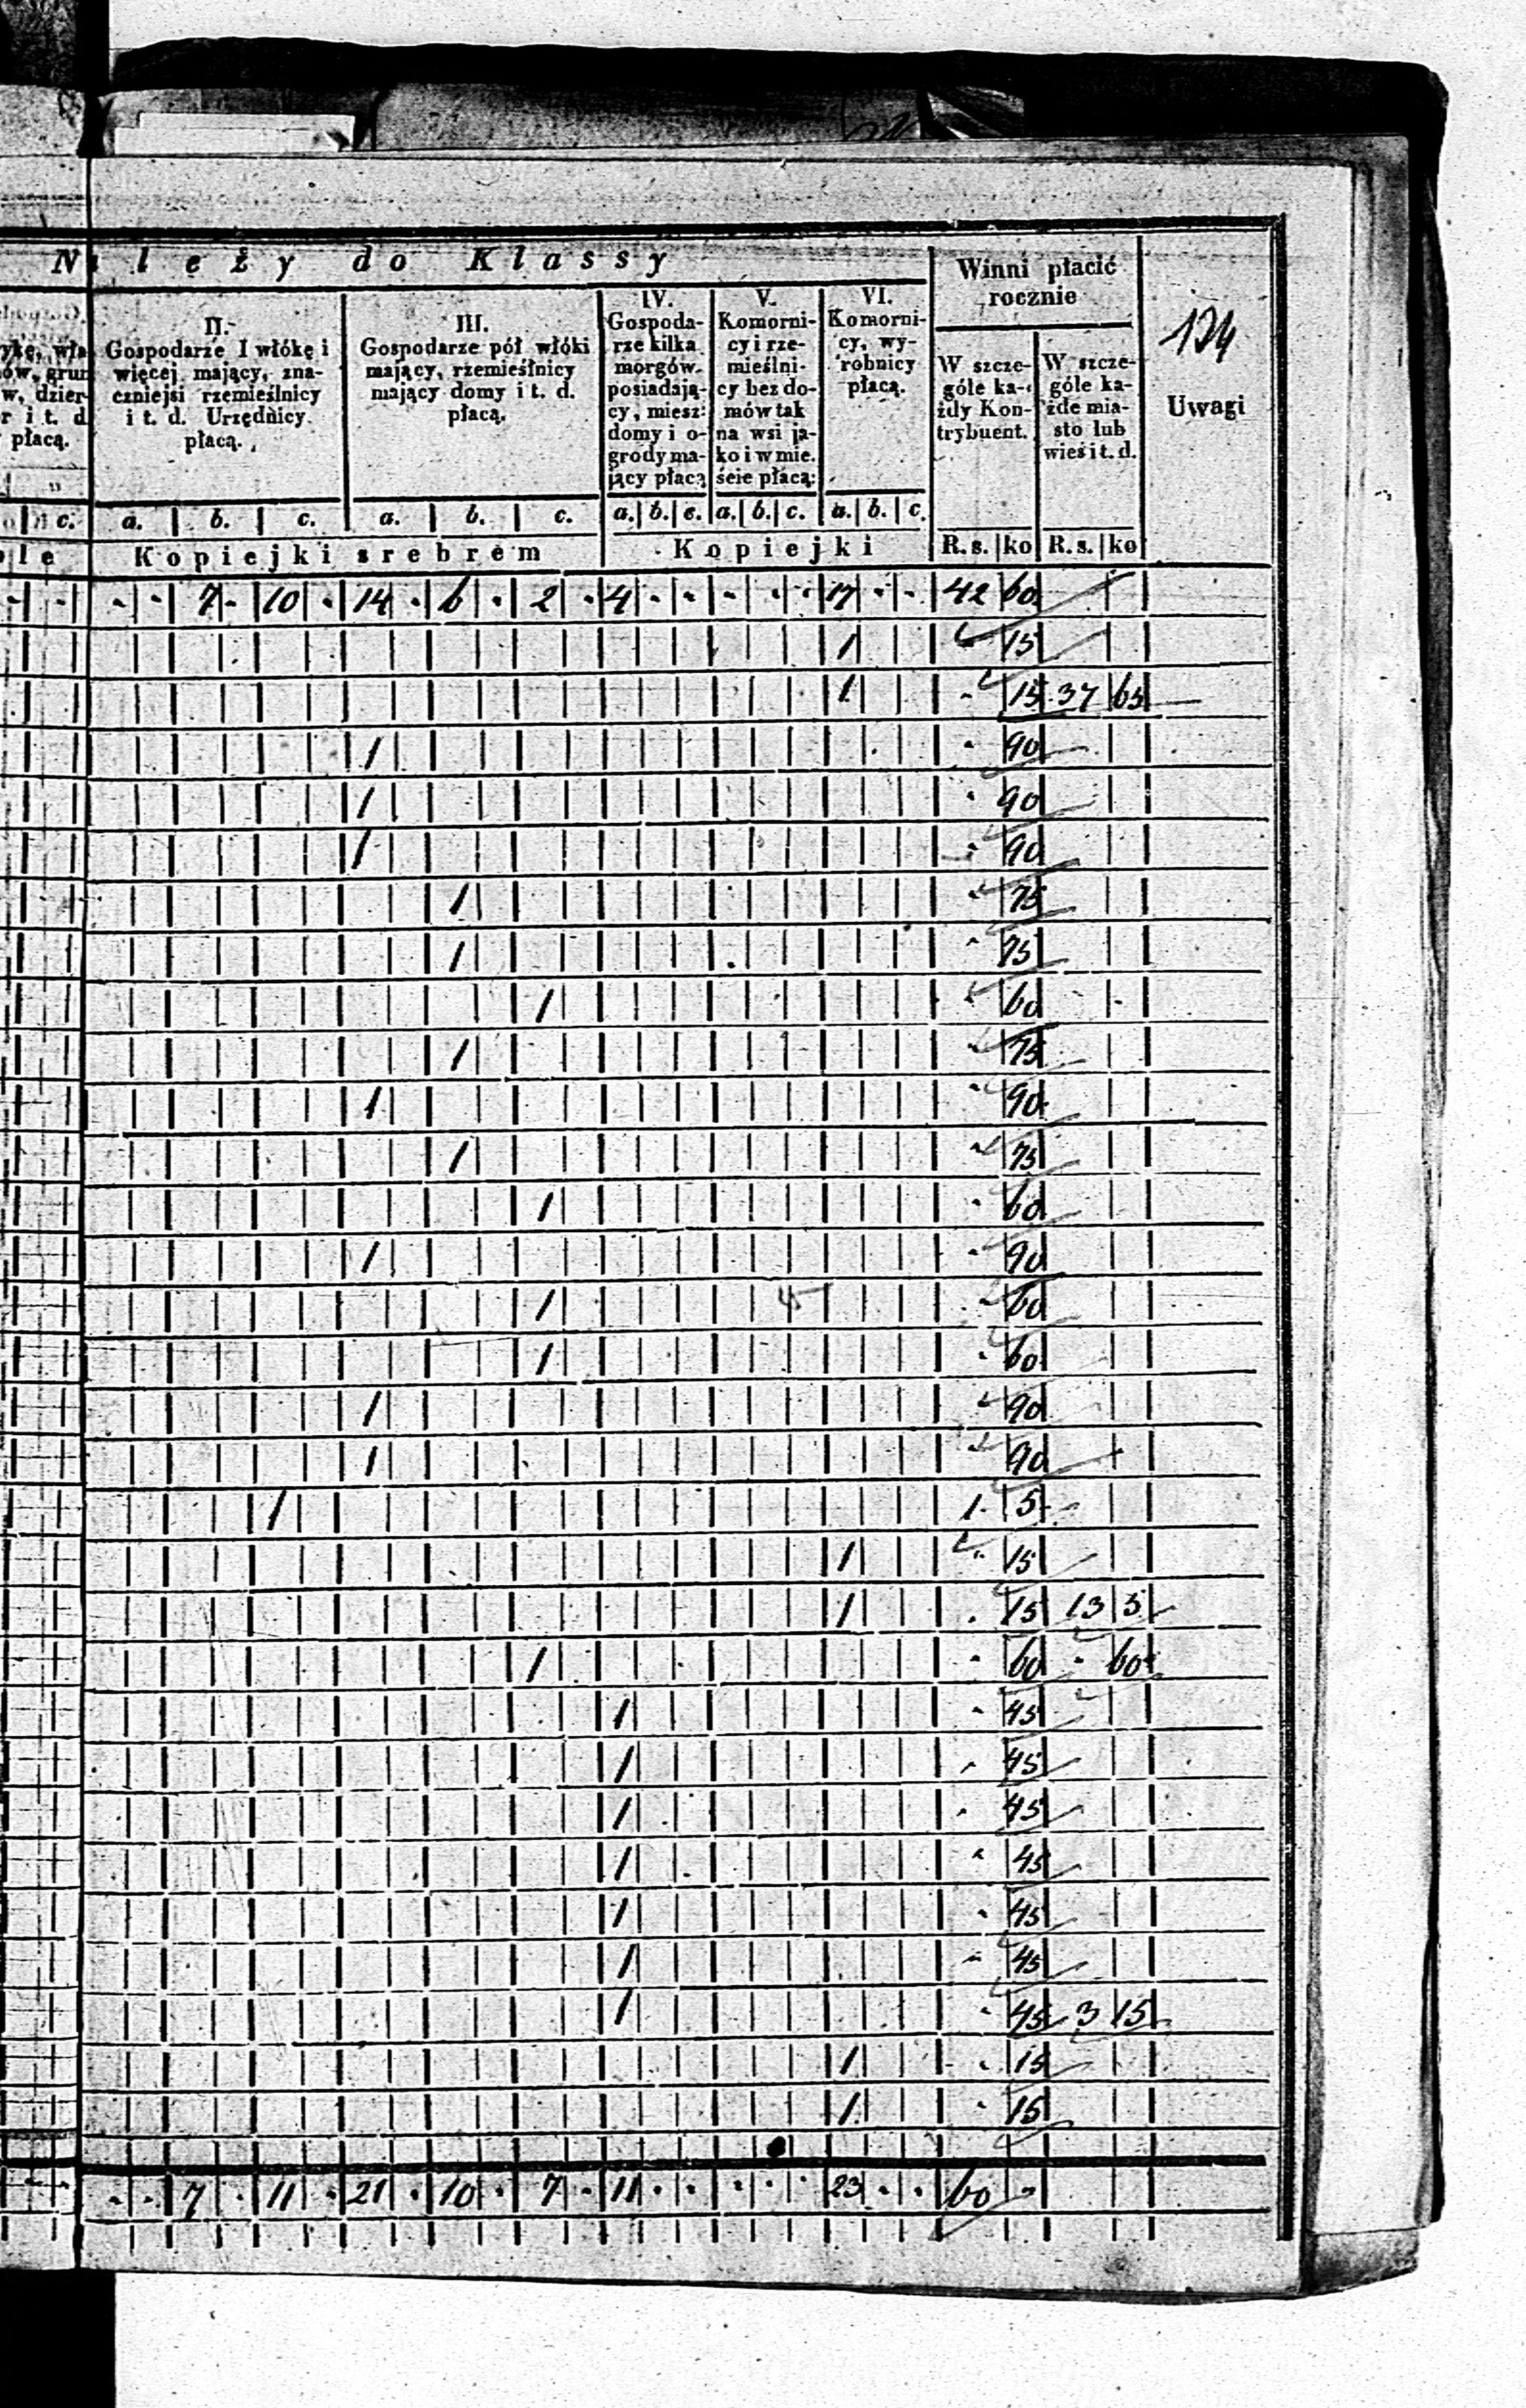 Należy do Klassy
Winni płacić
rocznie
194
Uwagi
płacą.
II.
Gospodarze I włókę i
więcej mający, zna-
czniejsi rzemieślnicy
i t. d. Urzędnicy
płacą.
III.
Gospodarze pół włóki
mający, rzemieślnicy
mający domy i t. d.
płacą.
IV.
Gospoda-
rze kilka
morgów
posiadają-
cy, miesz:
domy i o-
grody ma-
jący płacą
V.
Komorni-
cy i rze-
mieślni-
cy bez do-
mów tak
na wsi ja-
ko i w mie.
ście płacą:
VI.
Komorni-
cy, wy-
robnicy
płacą.
W szcze-
góle ka-
żdy Kon-
trybuent.
W szcze-
góle ka-
żde mia-
sto lub
wieś i t. d.
c. a. b. c. a. b. c. a. b. c. a. b. c. a. b. c.
Kopiejki srebrem Kopiejki R.s. ko R.s. ko
7 10 14 6 2 4 17 42 60
1 15
1 15 37 65
1 90
1 90
1 90
1 75
1 75
1 60
1 75
1 90
1 75
1 60
1 90
1 60
1 60
1 90
1 90
1 1 5
1 15
1 15 13 5
1 60 60
1 45
1 45
1 45
1 45
1 45
1 45
1 45 3 15
1 15
1 15
7 11 21 10 7 11 23 60